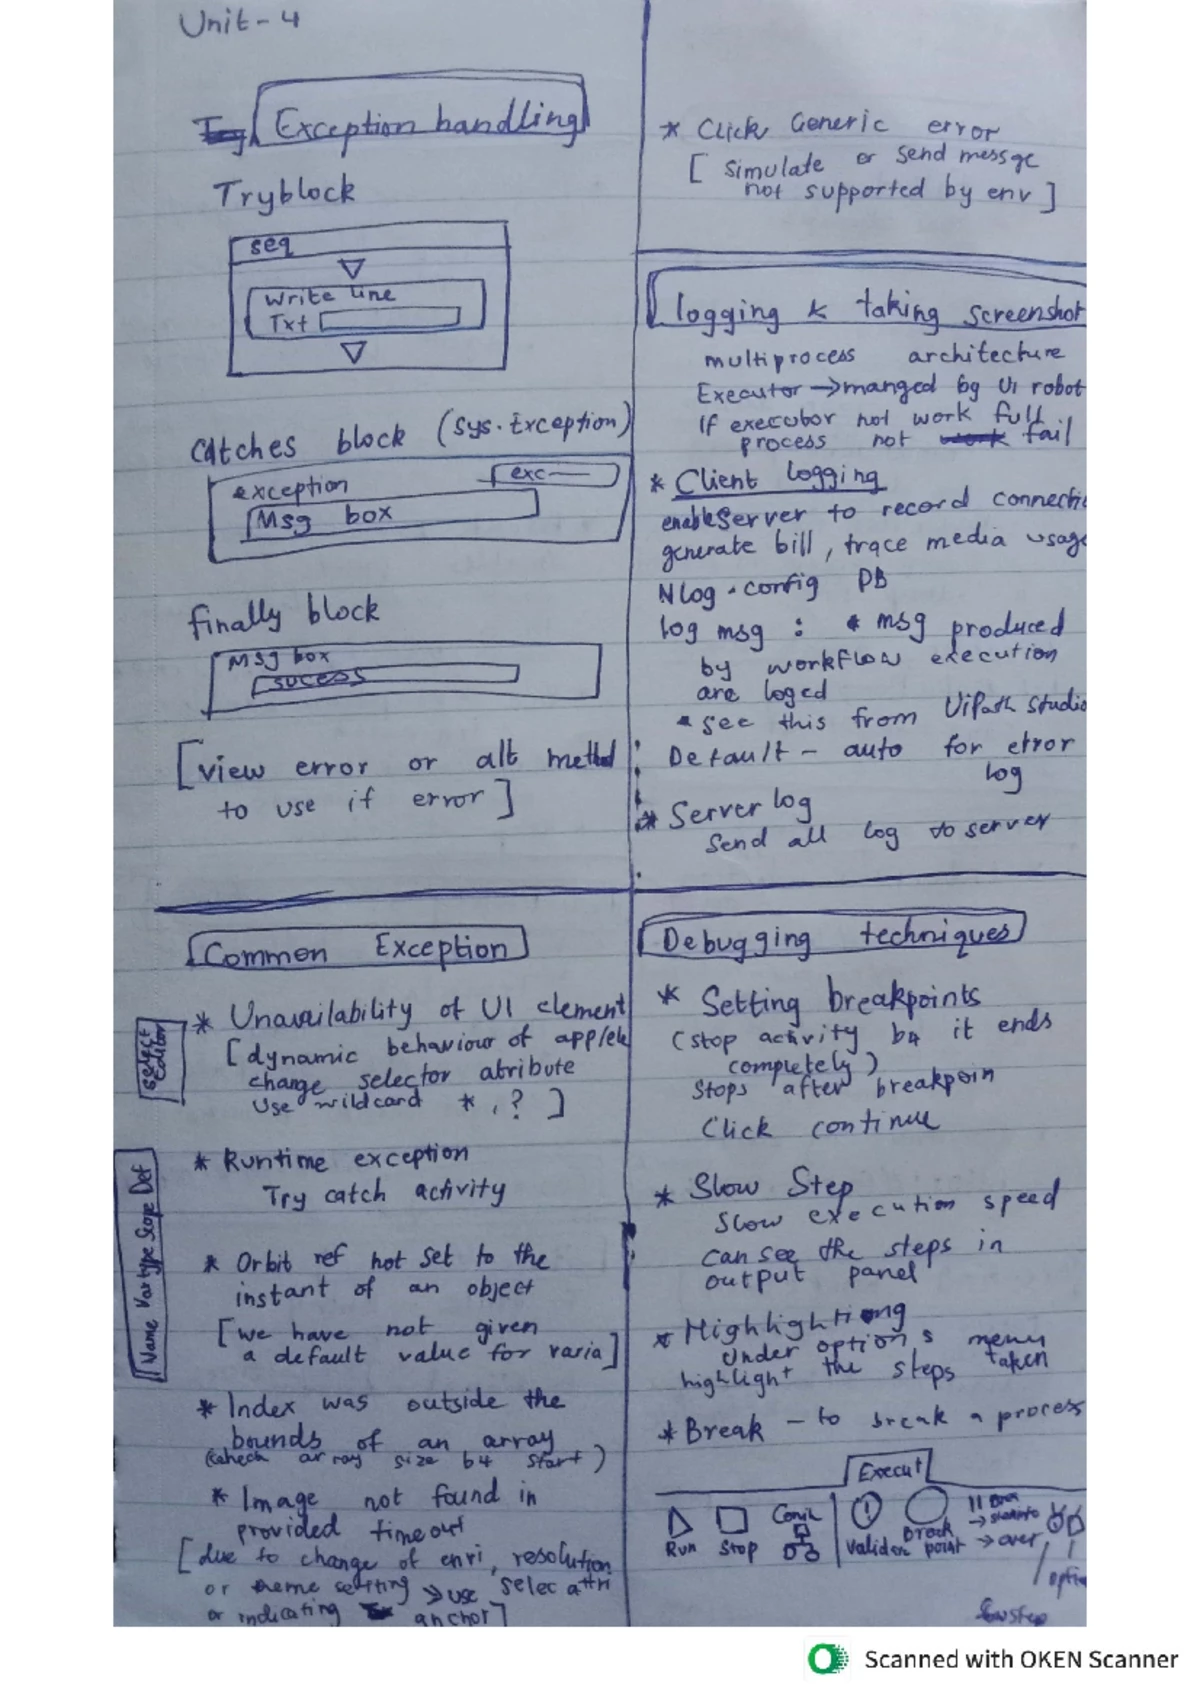 Unit - 4
Exception handling
Tryblock
seq
Write line
Txt
Catches block (sys. Exception)
exception exc
Msg box
finally block
Msg box
sucess
[view error or alt method
to use if error]
Common Exception
Select
Editor
* Unavailability of UI element
[dynamic behaviour of app/ele
change selector atribute
Use wildcard *, ? ]
* Runtime exception
Try catch activity
Name Var type Scope Def
* Orbit ref not set to the
instant of an object
[we have not given
a default value for varia]
* Index was outside the
bounds of an array
(check array size b4 start)
* Image not found in
provided timeout
[due to change of envi, resolution
or theme setiting → use selec attri
or indicating anchor]
* Click Generic error
[ simulate or send messge
not supported by env ]
logging & taking screenshot
multiprocess architecture
Executor → manged by Ui robot
If executor not work full
process not fail
* Client logging
enable server to record connectio
generate bill, trace media usage
Nlog.config DB
log msg : * msg produced
by workflow execution
are loged
* see this from UiPath Studio
Default - auto for error
log
* Server log
Send all log to server
Debugging techniques
* Setting breakpoints
(stop activity b4 it ends
completely)
Stops after breakpoin
Click continue
* Slow Step
Slow execution speed
can see the steps in
output panel
* Highlighting
Under options menu
highlight the steps taken
* Break - to break a process
Execut
Run Stop
Break point
→ over
optio
Slowstep
Scanned with OKEN Scanner